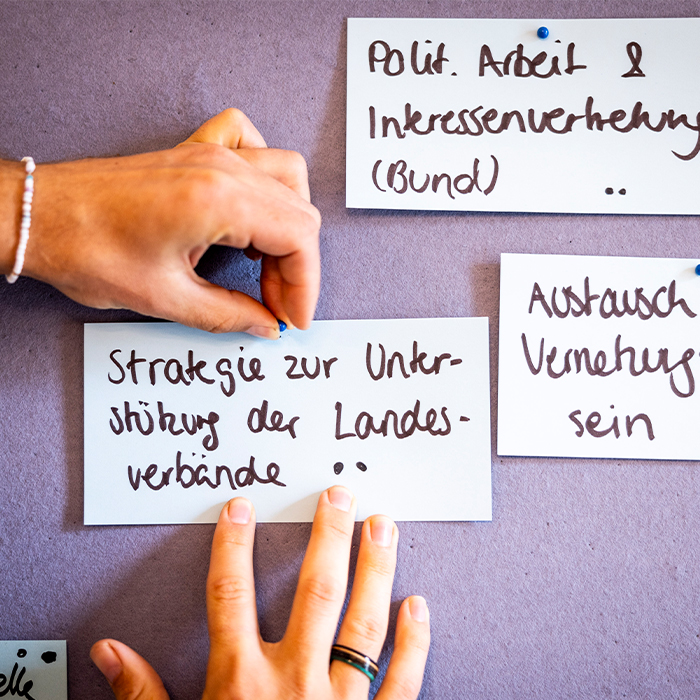 Polit. Arbeit &
Interessenvertretung
(Bund)
Austausch
Vernetzung
sein
Strategie zur Unter-
stützung der Landes-
verbände
elle